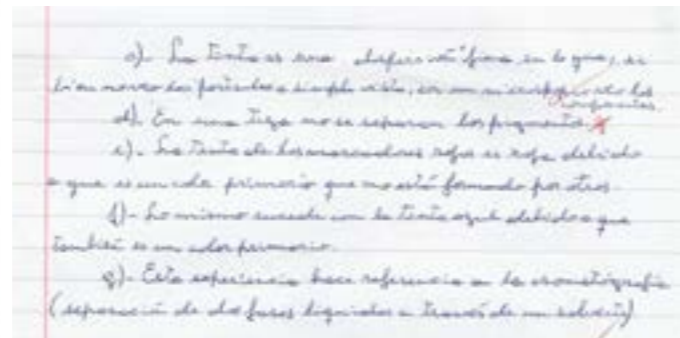 c)- La tinta es una dispersión fina en la que, si
bien no veo las partículas a simple vista, con un microscopio veo los
componentes.
d)- En una tiza no se separan los pigmentos.
e)- La tinta de los marcadores rojos es roja debido
a que es un color primario que no está formado por otros.
f)- Lo mismo sucede con la tinta azul debido a que
también es un color primario.
g)- Esta experiencia hace referencia a la cromatografía
(separación de dos fases líquidas a través de un solvente)